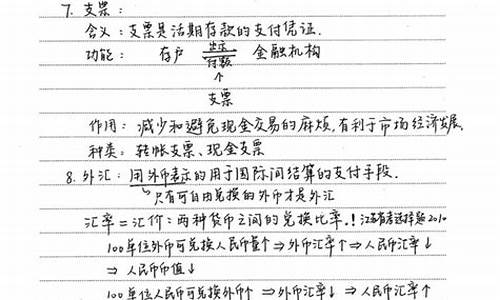 7. 支票：
含义：支票是活期存款的支付凭证.
功能： 存户 出示 金融机构
付款
↑
支票
作用：减少和避免现金交易的麻烦,有利于市场经济发展.
种类：转帐支票、现金支票
8. 外汇：用外币表示的用于国际间结算的支付手段.
↳只有可自由兑换的外币才是外汇
汇率＝汇价：两种货币之间的兑换比率.！江苏省考选择题2010
100单位外币可兑换人民币↑⇒外币汇率↑⇒人民币汇率↓
⇒人民币币值↓
100单位人民币可兑换外币↑⇒外币汇率↓⇒人民币汇率↑